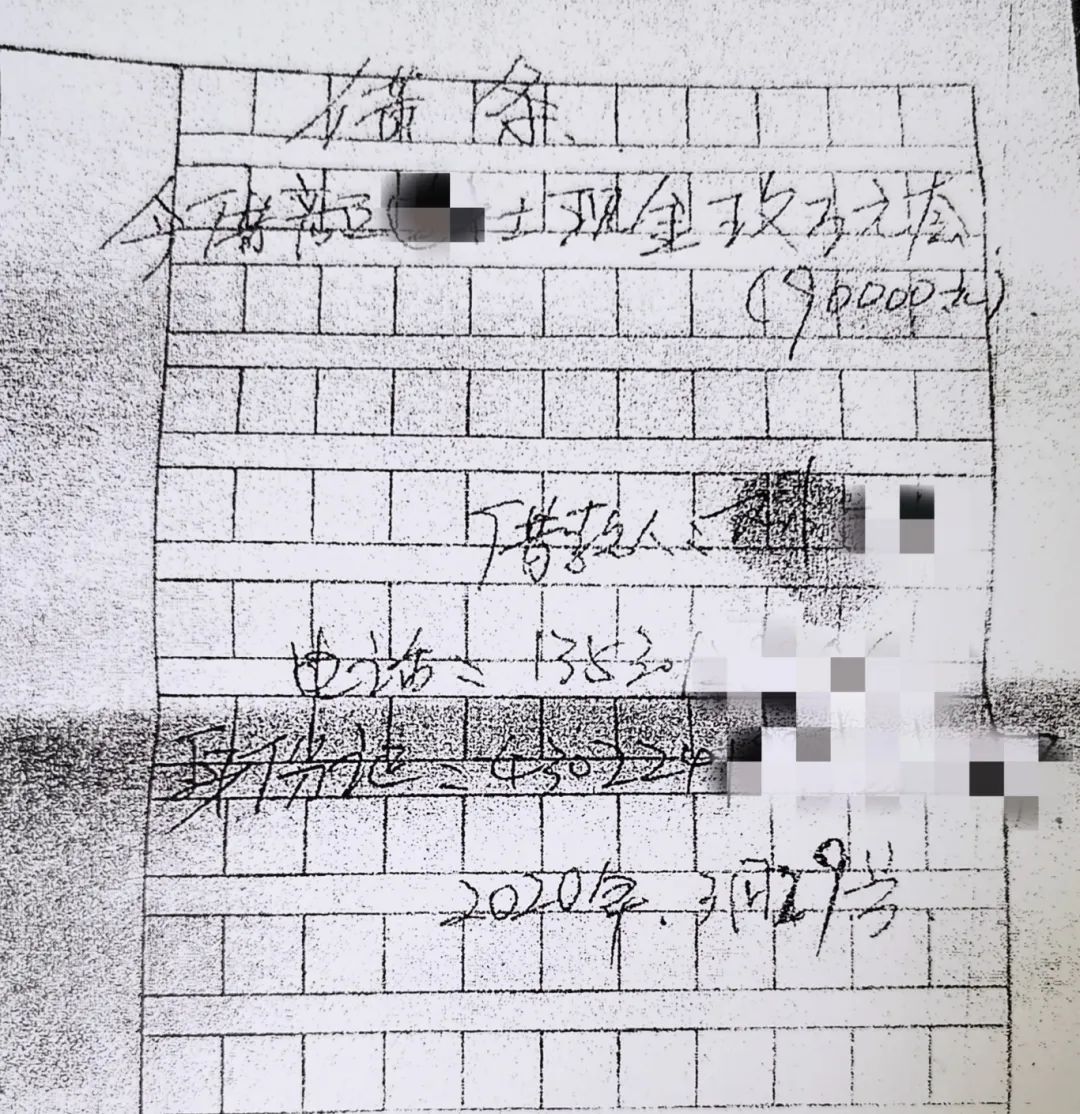 借条
今借 士现金玖万元整
(90000元)
借款人:
电话: 13530
身份证: 430224
2020年.3月29号